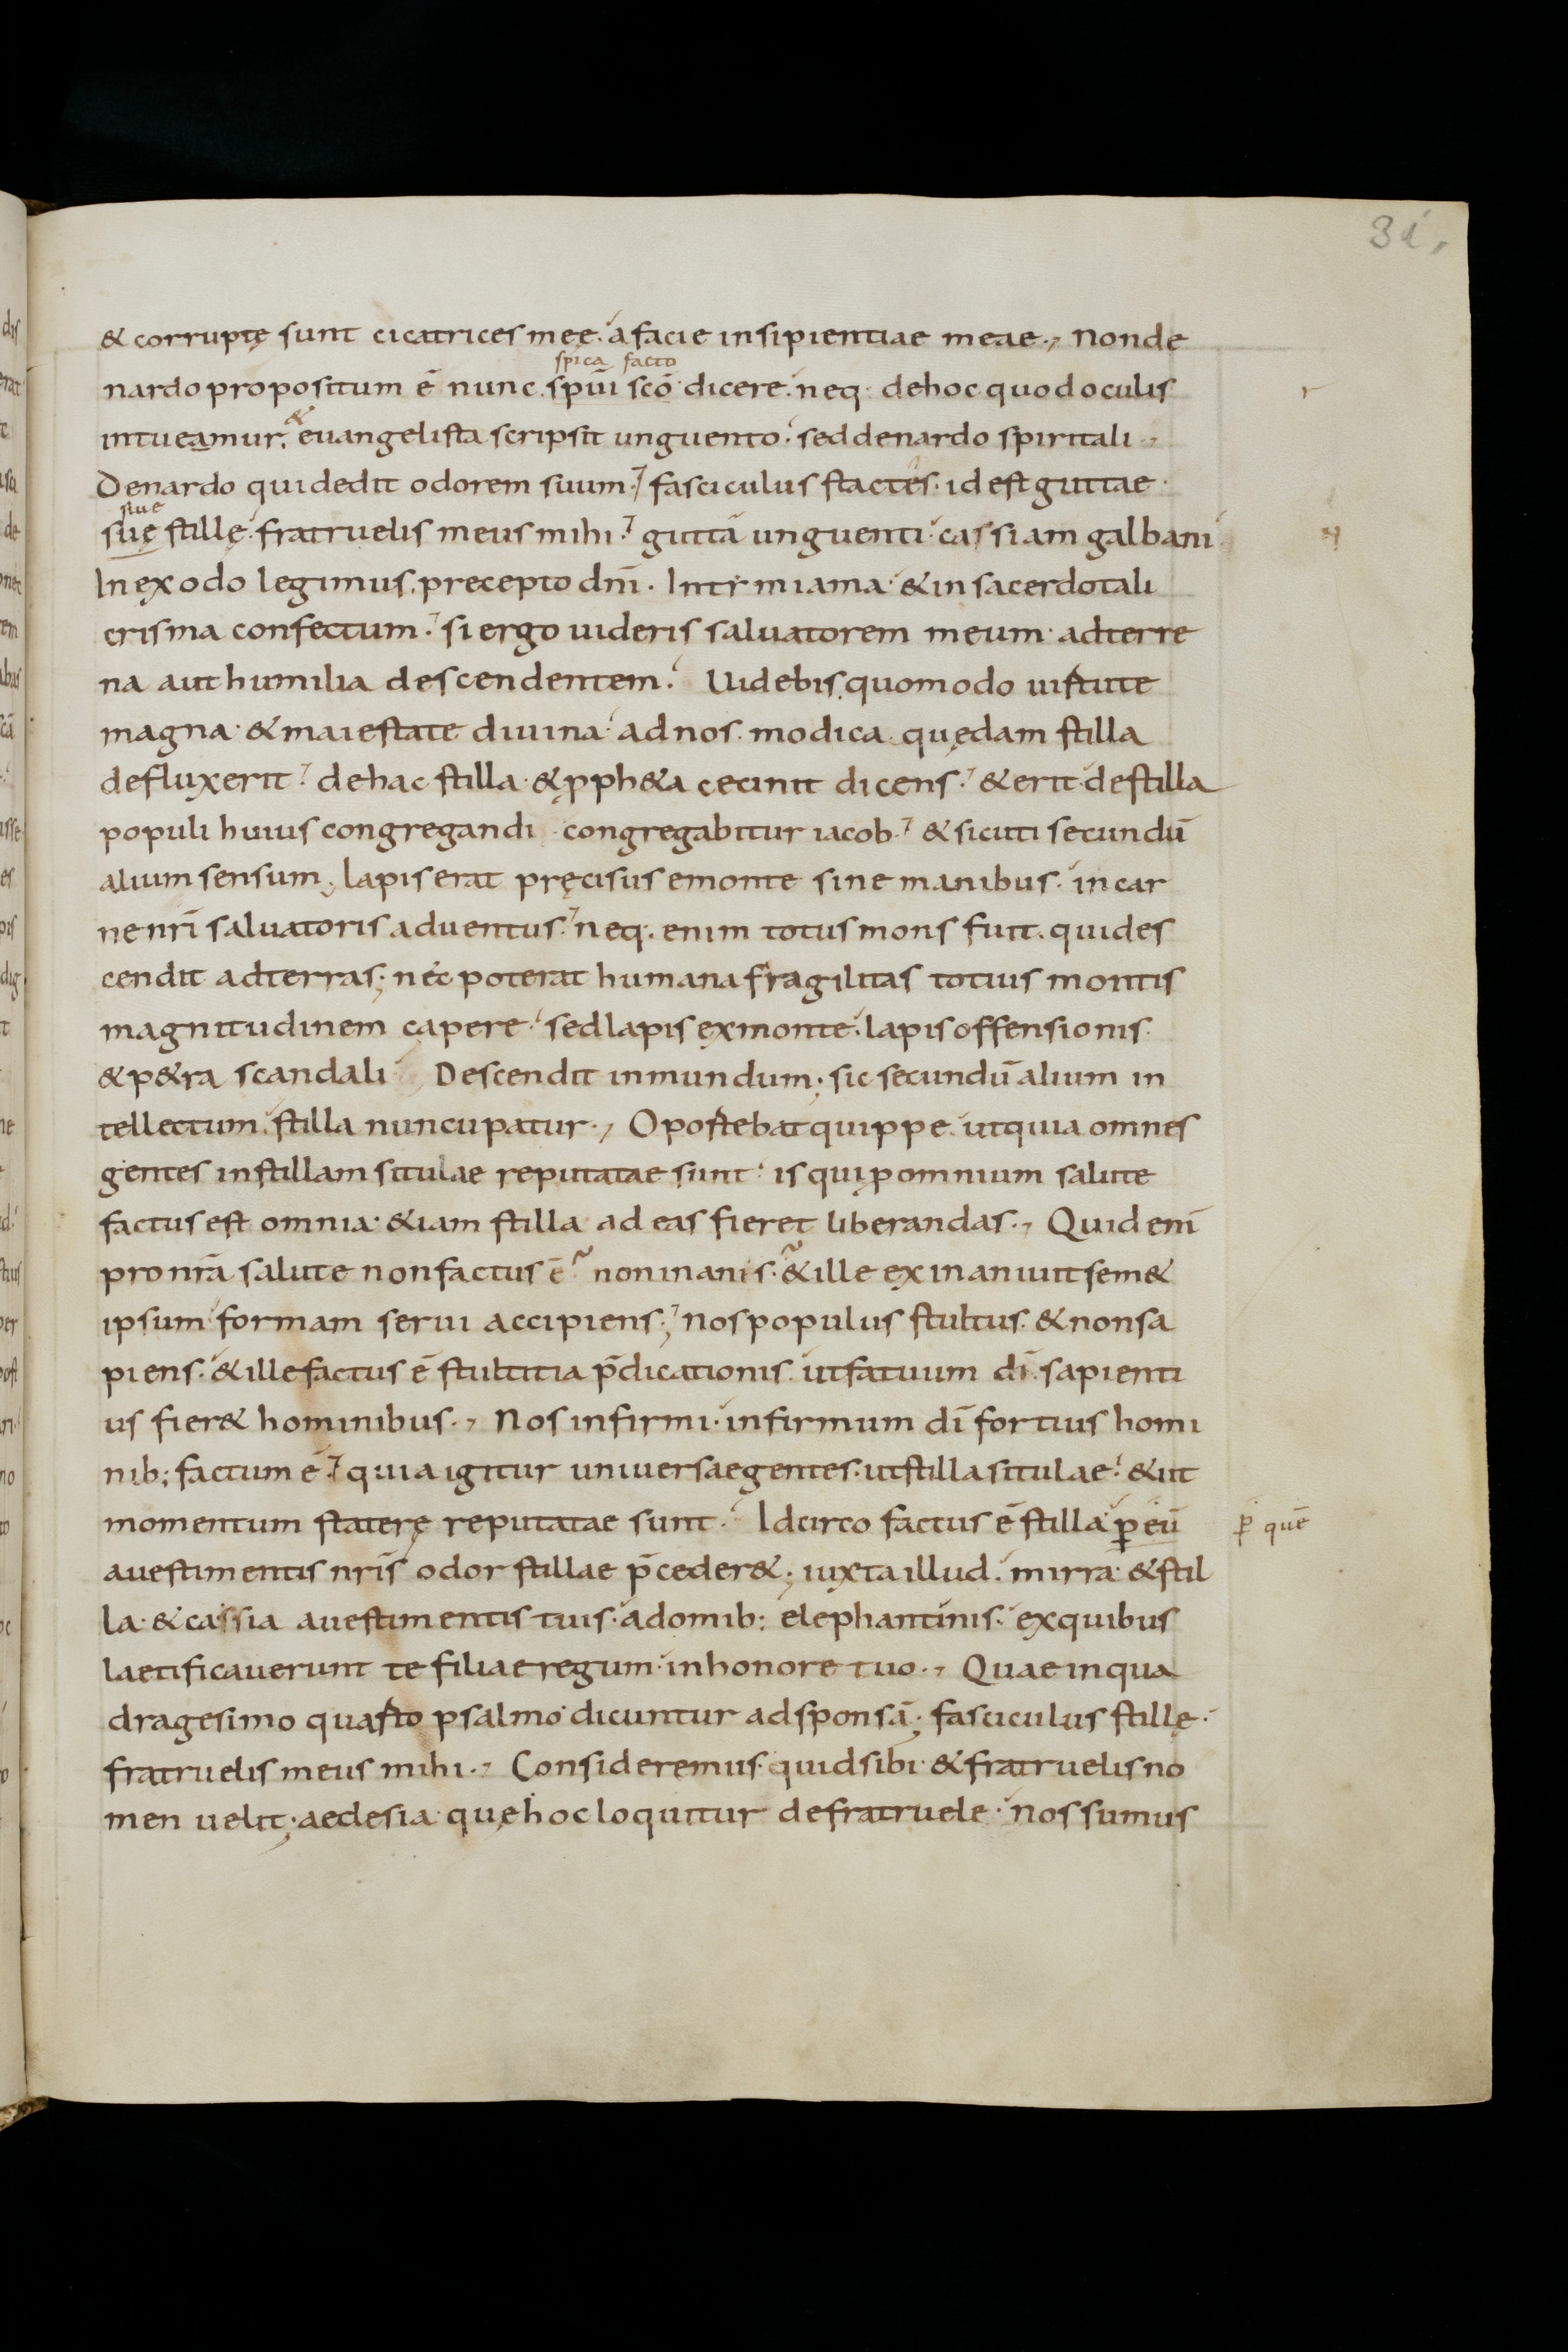 31.
& corruptę sunt cicatrices meę. a facie insipientiae meae., Non de
spica facto
nardo propositum ē nunc. spūi scō dicere. neq. de hoc quod oculis
&
intueamur. euangelista scripsit unguento. sed de nardo spiritali.,
De nardo qui dedit odorem suum. fasciculus stactes. id est guttae.
siue
suę stillę. fratruelis meus mihi. guttā unguenti. cassiam galbani
In exodo legimus. precepto dnī. Intimiama. & in sacerdotali
crisma confectum. si ergo uideris saluatorem meum. ad terre
na aut humilia descendentem. Uidebis. quomodo uirtute
magna. & maiestate diuina. ad nos. modica quędam stilla
defluxerit. de hac stilla. & pph&a cecinit dicens. & erit de stilla
populi huius congregandi. congregabitur iacob. & sicuti secundū
alium sensum; lapis erat pręcisus e monte sine manibus. in car
ne nrī saluatoris aduentus. neq. enim totus mons fuit. qui des
cendit ad terras; nec poterat humana fragilitas totius montis
magnitudinem capere. sed lapis ex monte. lapis offensionis.
& p&ra scandali. Descendit in mundum; sic secundū alium in
tellectum. stilla nuncupatur., Oportebat quippe. ut quia omnes
gentes in stillam situlae reputatae sunt. is qui p omnium salute
factus est omnia. &iam stilla ad eas fieret liberandas., Quid enī
pro nrā salute non factus ē. non inanis. & ille exinaniuit sem&
ipsum formam serui accipiens; nos populus stultus. & non sa
piens. & ille factus ē stultitia p̄dicationis. ut fatuum dī. sapienti
us fier& hominibus., Nos infirmi. infirmum dī fortius homi
nib; factum ē. quia igitur uniuersae gentes. ut stilla situlae. & ut
momentum staterę reputatae sunt. Idcirco factus ē stilla. p eū
p quē
a uestimentis nrīs odor stillae p̄ceder&; iuxta illud. mirra. & stil
la. & cassia a uestimentis tuis. a domib; elephantinis. ex quibus
laetificauerunt te filiae regum. in honore tuo., Quae in qua
dragesimo quarto psalmo dicuntur ad sponsā; fasciculus stillę.
fratruelis meus mihi., Consideremus. quid sibi & fratruelis no
men uelit; aeclesia. quę hoc loquitur de fratruele. nos sumus